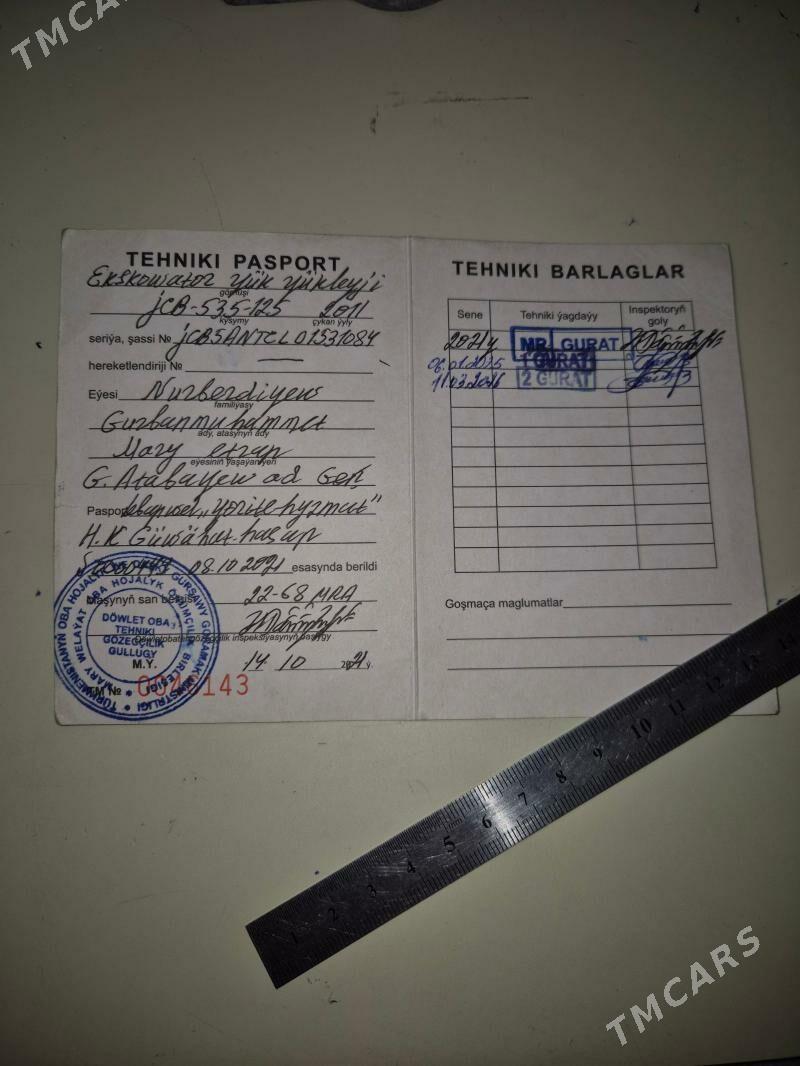 TMCARS
TEHNIKI PASPORT
Ekskowator ýük ýükleýji
görnüşi
JCB-535-125 2011
kysymy çykan ýyly
seriýa, şassi № JCB5ANTCL01531084
hereketlendiriji № —
Eýesi Nurberdiýew
familiýasy
Gurbanmuhammet
ady, atasynyň ady
Mary etrap
eýesiniň ýaşaýan ýeri
G. Atabaýew ad Geň
Pasport "ýörite hyzmat"
H.K Güwä hat. hasap
08.10 2021 esasynda berildi
Maşynyň san belgisi 22-68 MRA
Döwletobatehgözegçilik inspeksiýasynyň başlygy
M.Ý. 14 10 2021 ý.
TM № 0040143
DÖWLET OBA
TEHNIKI
GÖZEGÇILIK
GULLUGY
TEHNIKI BARLAGLAR
Sene Tehniki ýagdaýy Inspektoryň goly
2021ý MR GURAT
06.01.2025 1 GURAT
11.03.2026 2 GURAT
Goşmaça maglumatlar
1 2 3 4 5 6 7 8 9 10 11 12 13 14
TMCARS